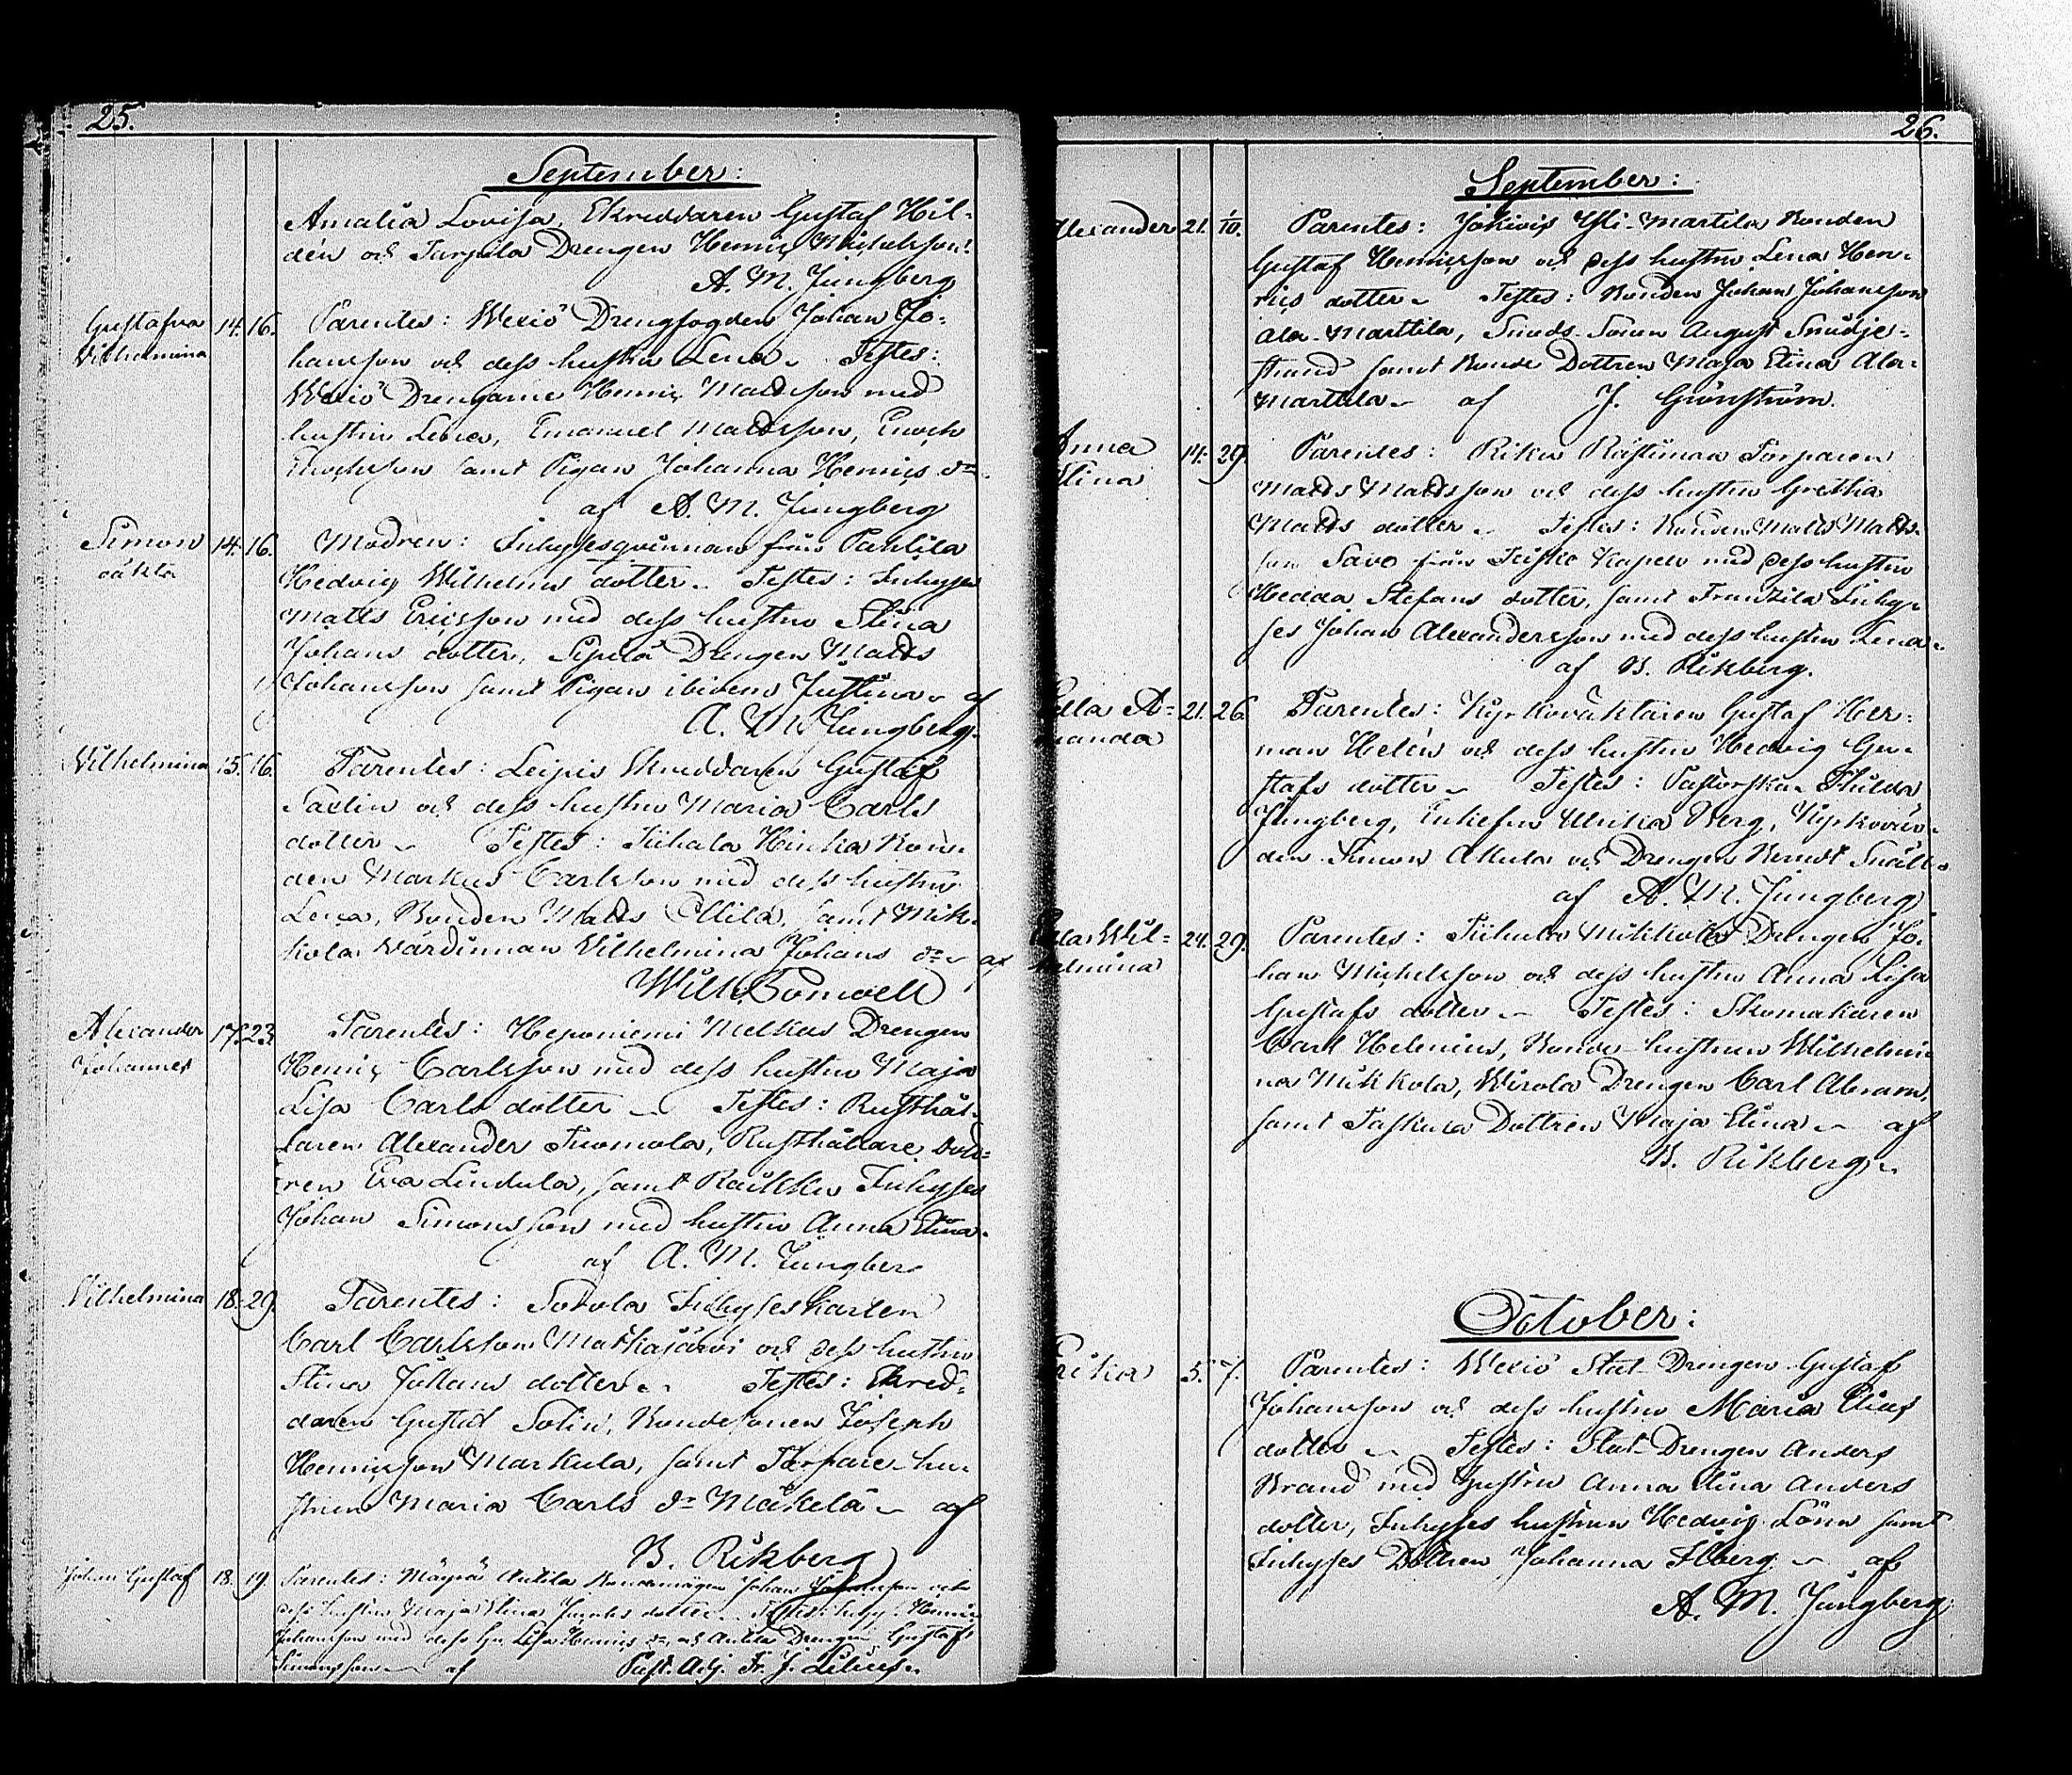 25.
September:
Amalia Lovisa, Skreddaren Gustaf Hil-
dén och Tarpila Drengen Henric Michelsson.
A. M. Ljungberg
Gustafva Vilhelmina 14. 16. Parentes: Wexiö Drengfogden Johan Jo-
hansson och dess hustru Lena. Testes:
Wexiö Drengarne Henric Mattsson med
hustru Lena, Emanuel Mattsson, Enoch
Enochsson samt Pigan Johanna Henrics dr
af A. M. Ljungberg
Simon oäkta 14. 16. Modren: Inhysesqvinnan från Panlila
Hedvig Wilhelms dotter. Testes: Inhyses
Matts Ericsson med dess hustru Stina
Johans dotter, Sipilä Drengen Matts
Johansson samt Pigan ibidem Justina af
A. M. Ljungberg.
Vilhelmina 15. 16. Parentes: Leipis Skreddaren Gustaf
Saxlin och dess hustru Maria Carls
dotter. Testes: Tiihala Hinka Bon-
den Markus Carlsson med dess hustru
Lena, Bonden Matts Ollila, samt Mik-
kola Värdinnan Vilhelmina Johans dr af
Wilh. Bonsdorff
Alexander Johannes 17. 23. Parentes: Heponiemi Melkas Drengen
Henric Carlsson med dess hustru Maja
Lisa Carls dotter Testes: Rusthål-
laren Alexander Tuomola, Rusthållare Dott-
ren Eva Lindula, samt Raukku Inhyses
Johan Simonsson med hustru Anna Stina.
af A. M. Ljungber
Vilhelmina 18. 29. Parentes: Sotola Inhyseskarlen
Carl Carlsson Matkajärvi och dess hustru
Stina Julians dotter. Testes: Skred-
daren Gustaf Solin, Bondesonen Joseph
Henricsson Markula, samt Torpare hu-
strun Maria Carls dr Mäkelä af
B. Rikberg
Johan Gustaf 18. 19. Parentes: Mäyrä Antila Bondemågen Johan Johansson och
dess hustru Maja Stina Jacobs dotter. Testes: Inhys. Henric
Johansson med dess hu. Lisa Henrics dr, och Antila Drengen Gustaf
Simonsson af Past. Adj. Fr. J. Lilius.
26.
September:
Alexander 21. 1/10. Parentes: Jokivis Yli-Marttila Bonden
Gustaf Henricsson och dess hustru Lena Hen-
rics dotter. Testes: Bonden Johan Johansson
Ala-Marttila, Smeds Sonen August Smidje-
strand samt Bonde Dottren Maja Stina Ala-
Marttila. af J. Grönström.
Anna Stina 14. 29. Parentes: Riku Räftimaa Torparen
Matts Mattsson och dess hustru Gretha
Matts dotter. Testes: Bonden Matts Matts-
son Savo från Teisko Kapell med dess hustru
Hedda Stefans dotter, samt Frantzila Inhy-
ses Johan Alexandersson med dess hustru Lena.
af B. Rikberg.
A- manda 21. 26. Parentes: Kyrkovaktaren Gustaf Her-
man Helén och dess hustru Hedvig Gu-
stafs dotter. Testes: Pastorskan Thilda
Ljungberg, Enkefru Ulrika Berg, Kyrkovär-
den Simon Akkula och Drengen Berndt Snäll.
af A. M. Ljungberg.
Wil- helmina 24. 29. Parentes: Tiihala Mikkola Drengen Jo-
han Michelsson och dess hustru Anna Lisa
Gustafs dotter. Testes: Skomakaren
Carl Helenius, Bonde hustrun Wilhelmi-
na Mikkola, Wirola Drengen Carl Abram,
samt Paskala Dottren Maja Stina. af
B. Rikberg.
October:
Erika 5. 7. Parentes: Wexiö Stat Drengen Gustaf
Johansson och dess hustru Maria Elias
dotter. Testes: Stat-Drengen Anders
Brand med hustru Anna Stina Anders
dotter, Inhyses hustrun Hedvig Lönn samt
Inhyses Dottren Johanna Flberg. af
A. M. Ljungberg.